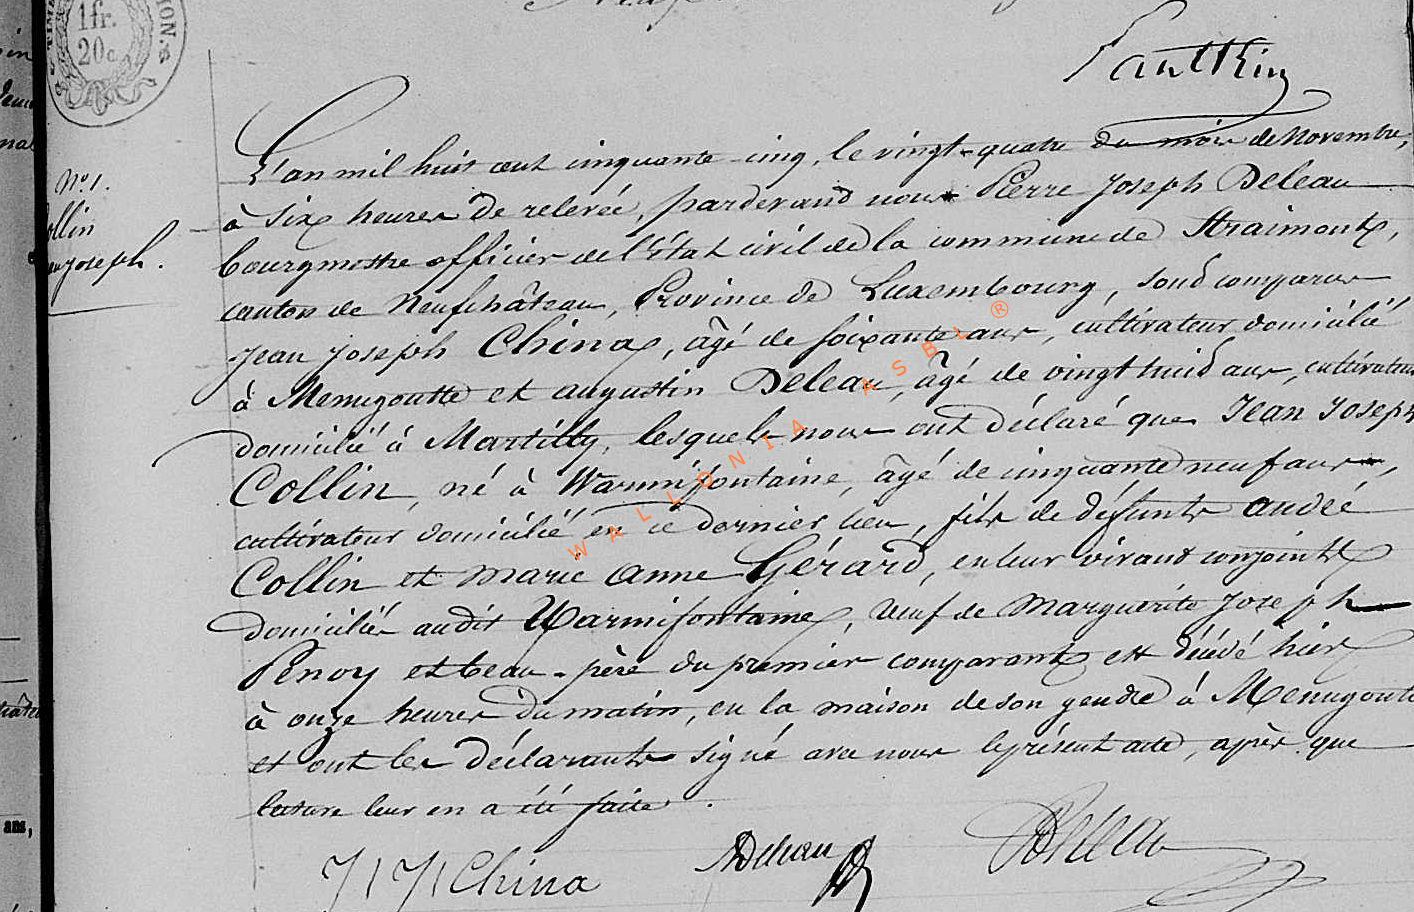 1fr.
20c.
Fantkin
N° 1.
Collin
Jean Joseph.
L'an mil huit cent cinquante-cinq, le vingt-quatre du mois de Novembre,
à six heures de relevée, pardevand nous Pierre Joseph Deleau
bourgmestre officier de l'état civil de la commune de Straimont,
canton de Neufchâteau, Province de Luxembourg, sond comparus
Jean Joseph China, âgé de soixante ans, cultivateur domicilié
à Menugoutte et augustin Deleau, âgé de vingt huid ans, cultivateur
domicilié à Martilly, lesquels nous ont déclaré que Jean Joseph
Collin, né à Warmifontaine, âgé de cinquante neuf ans,
cultivateur domicilié en ce dernier lieu, fils de défunts andré
Collin et marie anne Gérard, en leur vivant conjoints
domiciliés audit Warmifontaine, veuf de Marguerite Joseph
Penoy et beau-père du premier comparant est décédé hier
à onze heures du matin, en la maison de son gendre à Menugoutte
et ont les déclarants signé avec nous le présent acte, après que
lecture leur en a été faite.
J J China
ADeleau
Deleau
WALLONIA ASBL ®
ans,